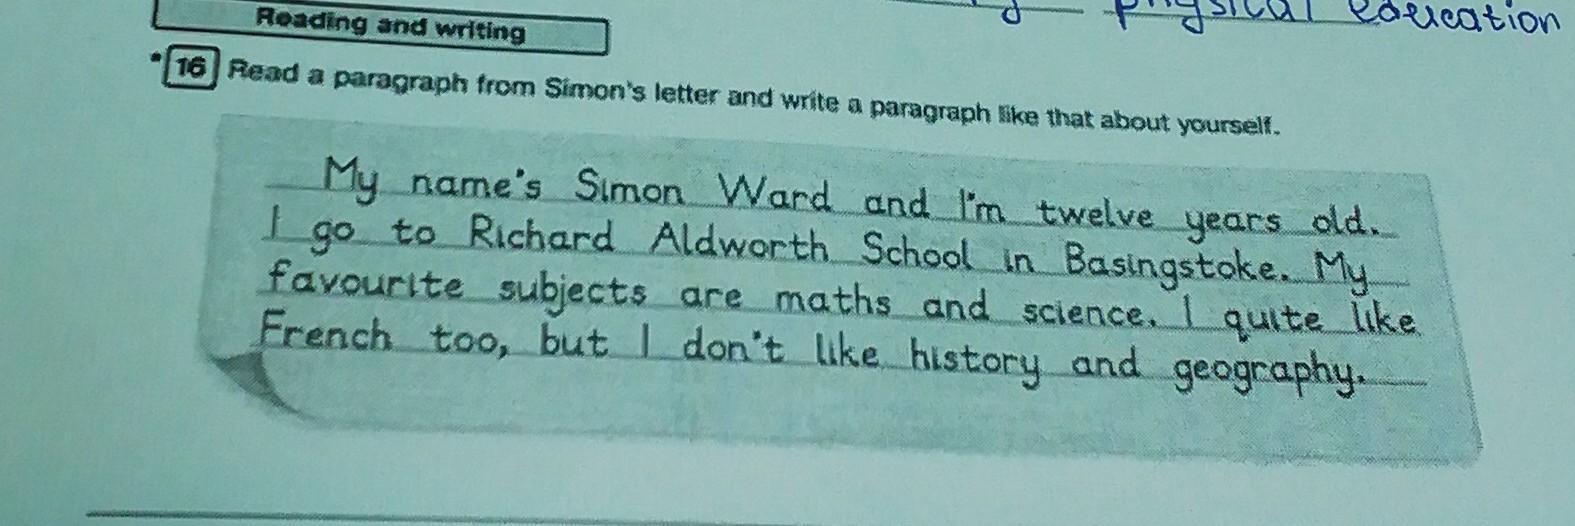 physical education
Reading and writing
*16 Read a paragraph from Simon's letter and write a paragraph like that about yourself.
My name's Simon Ward and I'm twelve years old.
I go to Richard Aldworth School in Basingstoke. My
favourite subjects are maths and science. I quite like
French too, but I don't like history and geography.